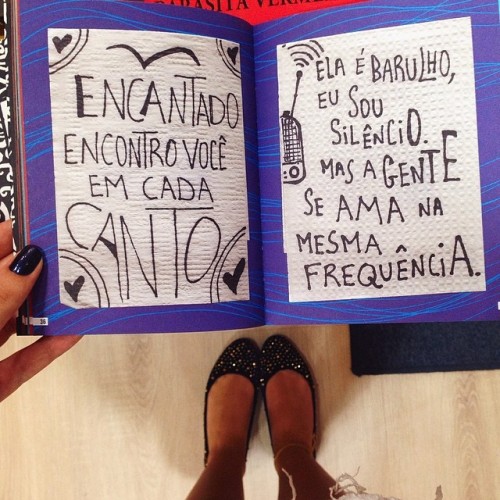 PARASITA VERME
ENCANTADO
ENCONTRO VOCÊ
EM CADA
CANTO
ELA É BARULHO,
EU SOU
SILÊNCIO.
MAS A GENTE
SE AMA NA
MESMA
FREQUÊNCIA.